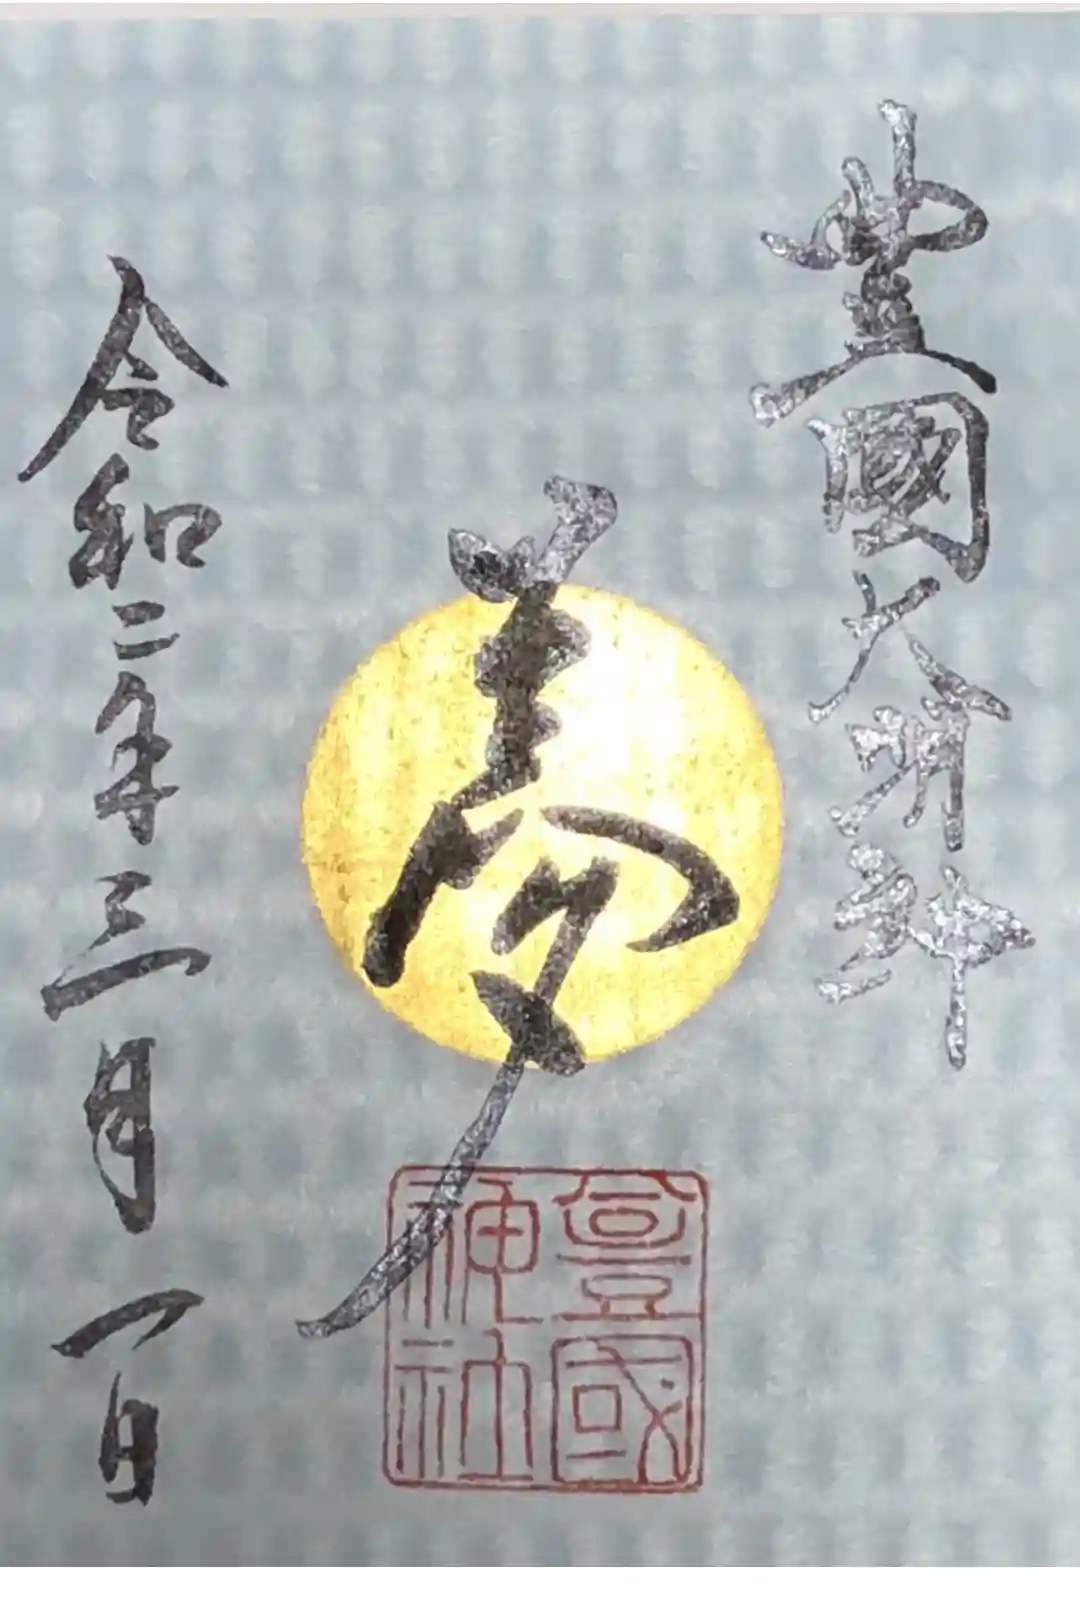 豊國大明神
夢
令和二年三月一日
豊國神社